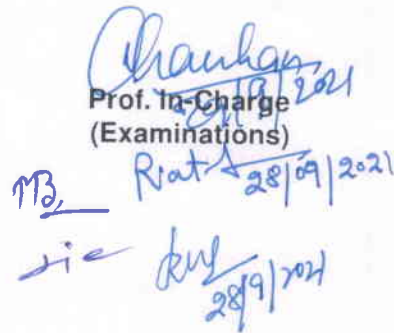 Chauhan
28/9/2021
Prof. In-Charge
(Examinations)
28/09/2021
MB
28/9/2021